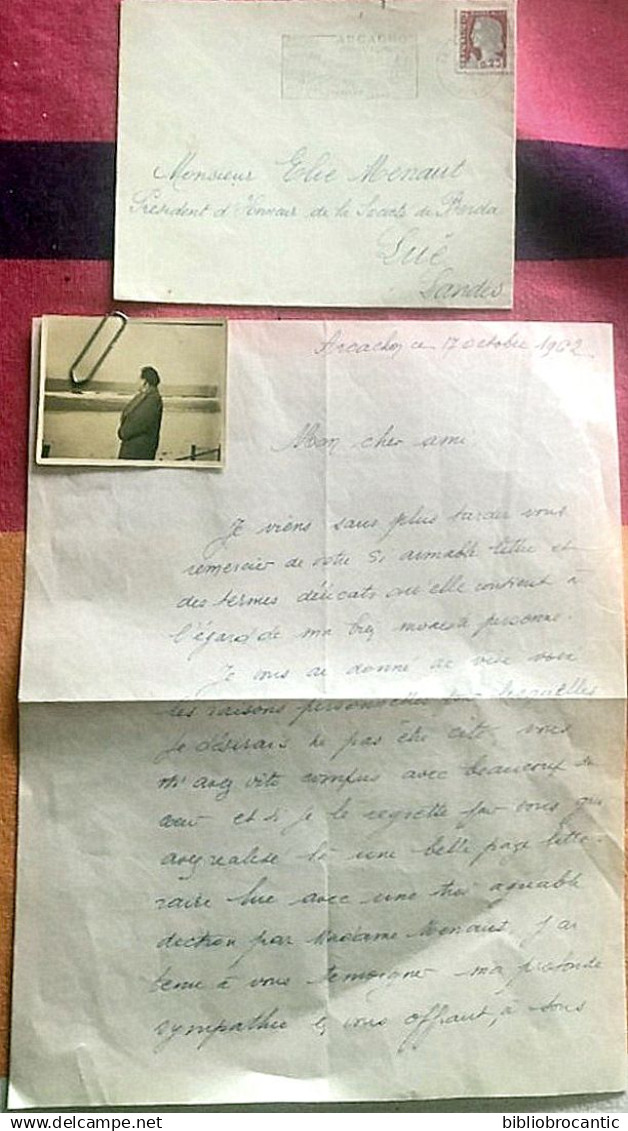 ARCACHON
Monsieur Elie Menaut
Président d'Honneur de la Société de Borda
Luë
Landes
Arcachon ce 17 octobre 1962
Mon cher ami
Je viens sans plus tarder vous
remercier de votre si aimable lettre et
des termes délicats qu'elle contient à
l'égard de ma bien modeste personne.
Je vous ai donné de vive voix
les raisons personnelles pour lesquelles
je désirais ne pas être cité. Vous
m'avez vite compris avec beaucoup de
cœur et si je le regrette pour vous qui
avez réalisé là une belle page litté-
raire lue avec une très agréable
diction par Madame Menaut, j'ai
tenu à vous témoigner ma profonde
sympathie en vous offrant, à tous
bibliobrocantic